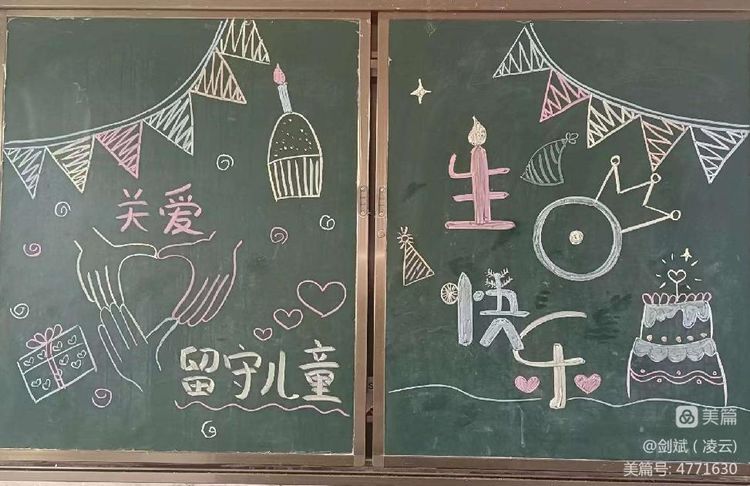 关爱
留守儿童
生日
快乐
美篇
@剑斌 ( 凌云)
美篇号: 4771630